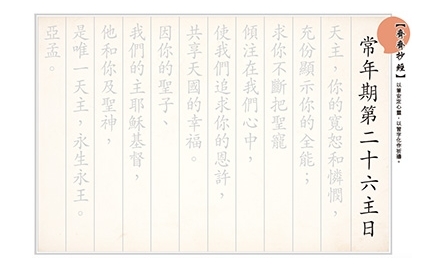 【齊齊抄經】
以筆安定心靈，以習字化作祈禱。
常年期第二十六主日
天主，你的寬恕和憐憫，
充份顯示你的全能；
求你不斷把聖寵
傾注在我們心中，
使我們追求你的恩許，
共享天國的幸福。
因你的聖子、
我們的主耶穌基督，
他和你及聖神，
是唯一天主，永生永王。
亞孟。